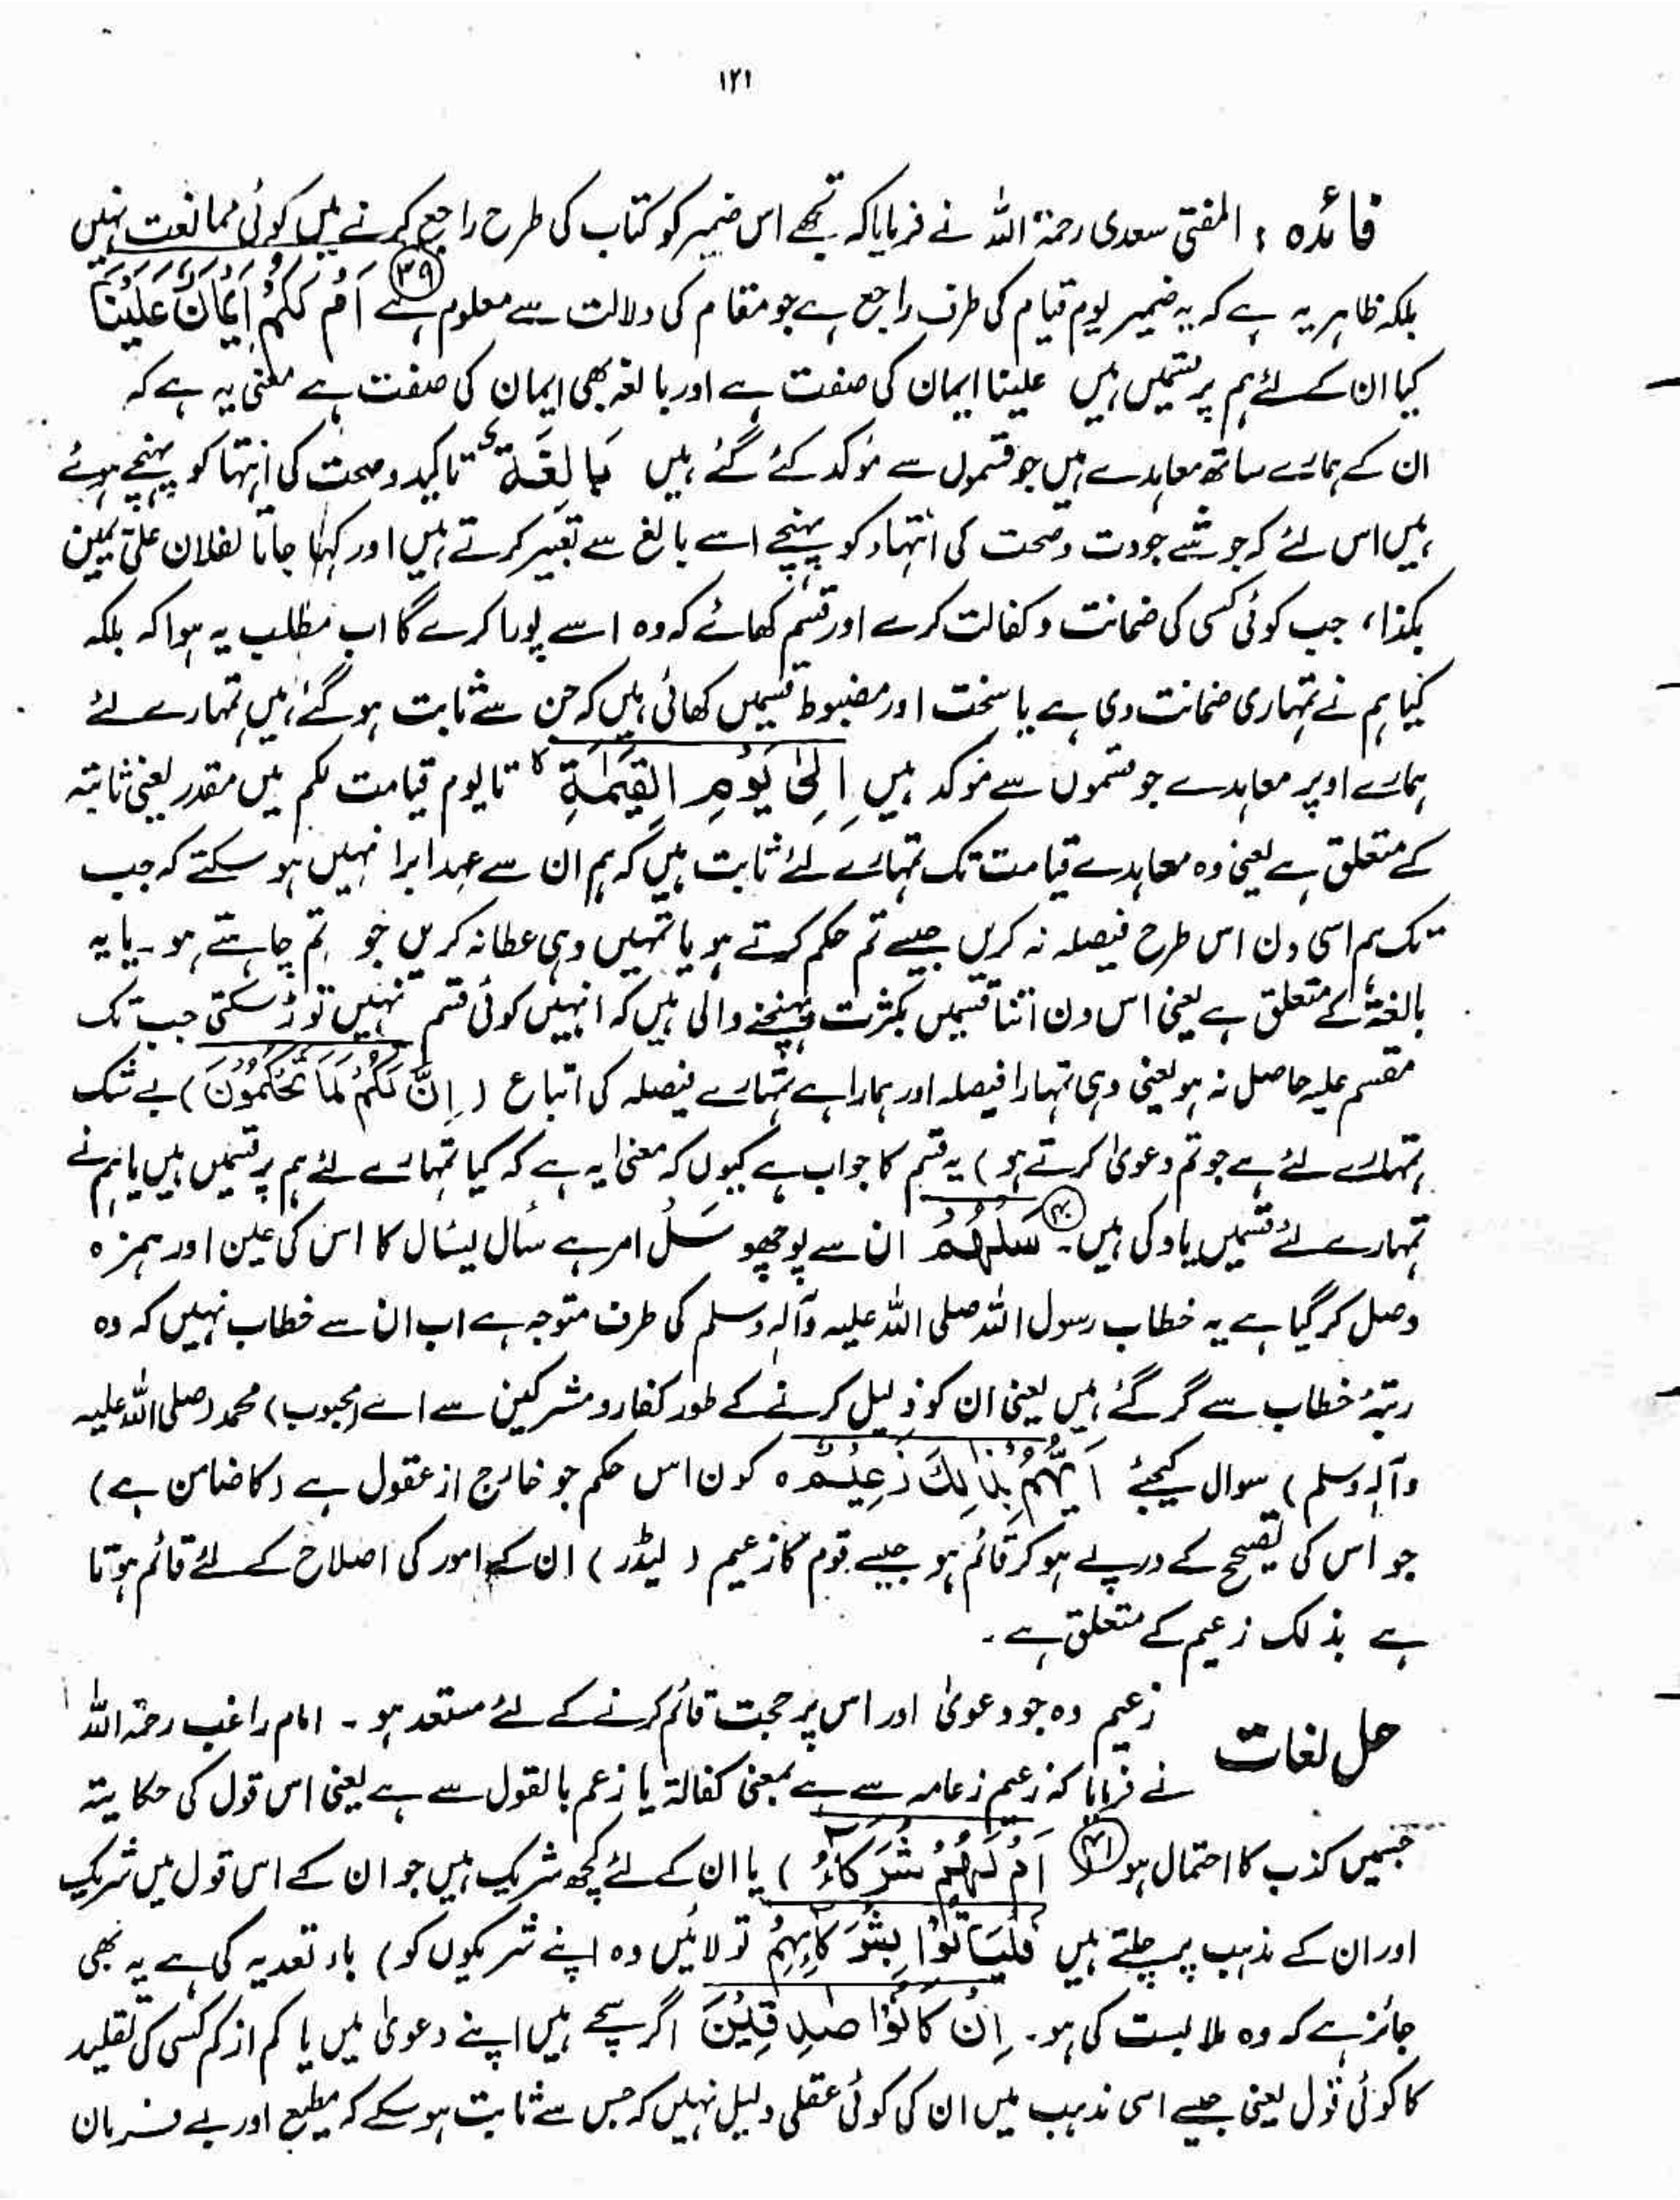 ۱۲۱
فائدہ : المفتی سعدی رحمۃ اللہ نے فرمایا کہ تجھے اس ضمیر کو کتاب کی طرح راجع کرنے میں کوئی ممانعت نہیں
بلکہ ظاہر یہ ہے کہ یہ ضمیر یوم قیام کی طرف راجع ہے جو مقام کی دلالت سے معلوم ہے ۳۹ اَمْ لَكُمْ اَيْمَانٌ عَلَيْنَا
کیا ان کے لئے ہم پر قسمیں ہیں علینا ایمان کی صفت ہے اور بالغہ بھی ایمان کی صفت ہے معنی یہ ہے کہ
ان کے ہمارے ساتھ معاہدے ہیں جو قسموں سے مؤکد کئے گئے ہیں بَالِغَةٌ تاکید و صحت کی انتہا کو پہنچے ہوئے
ہیں اس لئے کہ جو شے جودت و صحت کی انتہاء کو پہنچے اسے بالغ سے تعبیر کرتے ہیں اور کہا جاتا لفلان علیّ یمین
بکذا، جب کوئی کسی کی ضمانت و کفالت کرے اور قسم کھائے کہ وہ اسے پورا کرے گا اب مطلب یہ ہوا کہ بلکہ
کیا ہم نے تمہاری ضمانت دی ہے یا سخت اور مضبوط قسمیں کھائی ہیں کہ جن سے ثابت ہو گئے ہیں تمہارے لئے
ہمارے اوپر معاہدے جو قسموں سے مؤکد ہیں اِلٰى يَوْمِ الْقِيٰمَةِ تا یوم قیامت لکم میں مقدر یعنی ثابتہ
کے متعلق ہے یعنی وہ معاہدے قیامت تک تمہارے لئے ثابت ہیں کہ ہم ان سے عہدا برا نہیں ہو سکتے کہ جب
تک ہم اسی دن اس طرح فیصلہ نہ کریں جیسے تم حکم کرتے ہو یا تمہیں وہی عطا نہ کریں جو تم چاہتے ہو۔ یا یہ
بالغۃ کے متعلق ہے یعنی اس دن اتنا قسمیں بکثرت پہنچنے والی ہیں کہ انہیں کوئی قسم نہیں توڑ سکتی جب تک
مقسم علیہ حاصل نہ ہو یعنی وہی تمہارا فیصلہ اور ہمارا ہے تمہارے فیصلہ کی اتباع ( اِنَّ لَكُمْ لَمَا تَحْكُمُوْنَ ) بے شک
تمہارے لئے ہے جو تم دعویٰ کرتے ہو ) یہ قسم کا جواب ہے کیوں کہ معنیٰ یہ ہے کہ کیا تمہارے لئے ہم پر قسمیں ہیں یا ہم نے
تمہارے لئے قسمیں یاد کی ہیں۔ ۴۰ سَلْهُمْ ان سے پوچھو سَلْ امر ہے سأل یسئال کا اس کی عین اور ہمزہ
وصل کر گیا ہے یہ خطاب رسول اللہ صلی اللہ علیہ وآلہ وسلم کی طرف متوجہ ہے اب ان سے خطاب نہیں کہ وہ
رتبۂ خطاب سے گر گئے ہیں یعنی ان کو ذلیل کرنے کے طور کفار و مشرکین سے اے (محبوب) محمد (صلی اللہ علیہ
وآلہ وسلم ) سوال کیجئے اَيُّهُمْ بِذٰلِكَ زَعِيْمٌ ہ کون اس حکم جو خارج از عقول ہے ( کا ضامن ہے )
جو اس کی تصحیح کے درپے ہو کر قائم ہو جیسے قوم کا زعیم ( لیڈر ) ان کے امور کی اصلاح کے لئے قائم ہوتا
ہے بذلک زعیم کے متعلق ہے ۔
حل لغات زعیم وہ جو دعویٰ اور اس پر حجت قائم کرنے کے لئے مستعد ہو ۔ امام راغب رحمۃ اللہ
نے فرمایا کہ زعیم زعامہ سے ہے بمعنی کفالۃ یا زعم بالقول سے ہے یعنی اس قول کی حکایتہ
جسمیں کذب کا احتمال ہو ۴۱ اَمْ لَهُمْ شُرَكَآءُ ) یا ان کے لئے کچھ شریک ہیں جو ان کے اس قول میں شریک
اور ان کے مذہب پر چلتے ہیں فَلْيَاْتُوْا بِشُرَكَآئِهِمْ تو لائیں وہ اپنے شریکوں کو ) باء تعدیہ کی ہے یہ بھی
جائز ہے کہ وہ ملابست کی ہو۔ اِنْ كَانُوْا صٰدِقِيْنَ اگر سچے ہیں اپنے دعویٰ میں یا کم از کم کسی کی تقلید
کا کوئی قول یعنی جیسے اسی مذہب میں ان کی کوئی عقلی دلیل نہیں کہ جس سے ثابت ہو سکے کہ مطیع اور بے فرمان